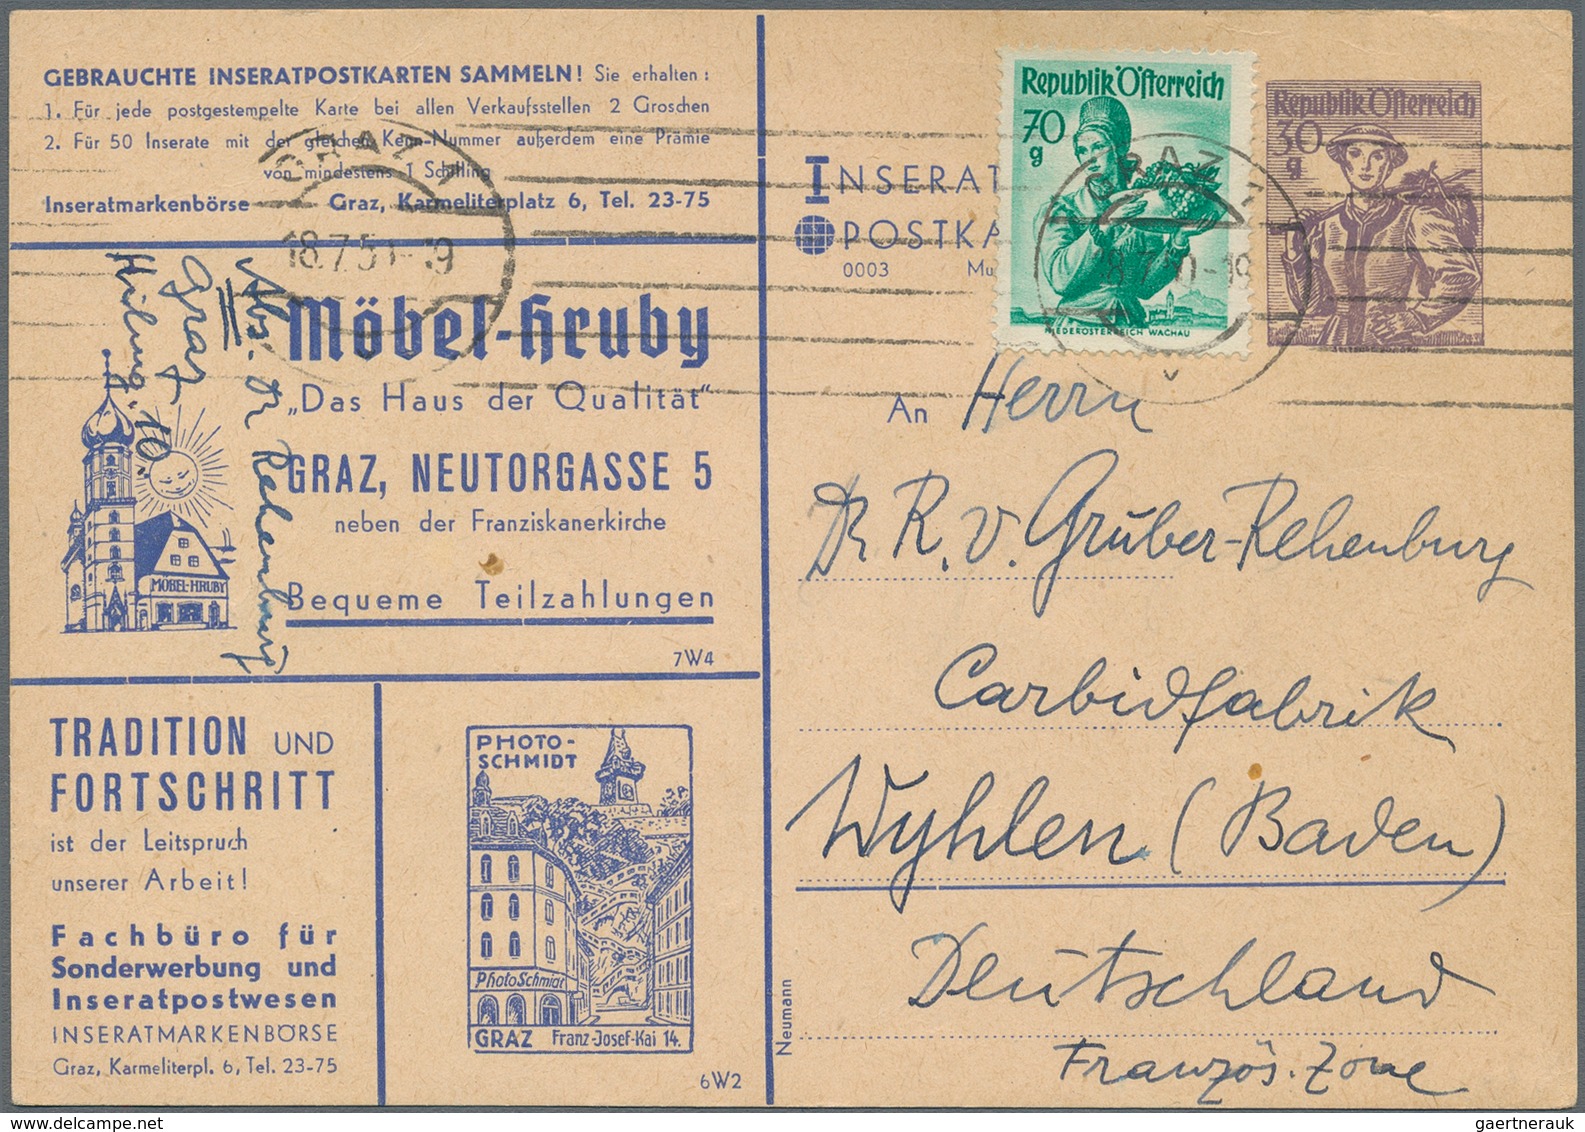 GEBRAUCHTE INSERATPOSTKARTEN SAMMELN! Sie erhalten:
1. Für jede postgestempelte Karte bei allen Verkaufsstellen 2 Groschen
2. Für 50 Inserate mit der gleichen Kenn-Nummer außerdem eine Prämie
von mindestens 1 Schilling
Inseratmarkenbörse Graz, Karmeliterplatz 6, Tel. 23-75
GRAZ
18.7.50-19
Abs. Dr Rehenburg
Graz
Hilmg. 10.
Möbel-Hruby
„Das Haus der Qualität"
GRAZ, NEUTORGASSE 5
neben der Franziskanerkirche
MÖBEL-HRUBY
Bequeme Teilzahlungen
7W4
TRADITION UND
FORTSCHRITT
ist der Leitspruch
unserer Arbeit!
Fachbüro für
Sonderwerbung und
Inseratpostwesen
INSERATMARKENBÖRSE
Graz, Karmeliterpl. 6, Tel. 23-75
PHOTO-
SCHMIDT
Photo Schmidt
GRAZ Franz-Josef-Kai 14.
6W2
Republik Österreich
70
g
NIEDERÖSTERREICH WACHAU
Republik Österreich
30
g
GRAZ
18.7.50-19
INSERAT
POSTKA
0003 Mu
An Herrn
Dr R. v. Gruber-Rehenburg
Carbidfabrik
Wyhlen (Baden)
Deutschland
Französ. Zone
Neumann
gaertnerauk